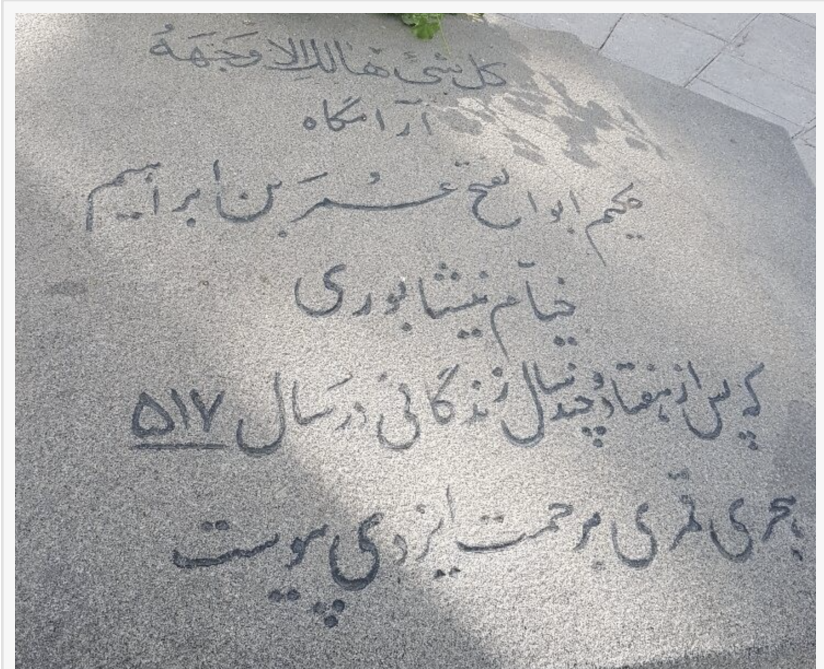 کل شئ هالك الا وَجَههُ
آرامگاه
حکیم ابوالفتح عُمَر بن ابراهیم
خیّام نیشابوری
که پس از هفتاد و چند سال زندگانی در سال ۵۱۷
هجری قمری برحمت ایزدی پیوست